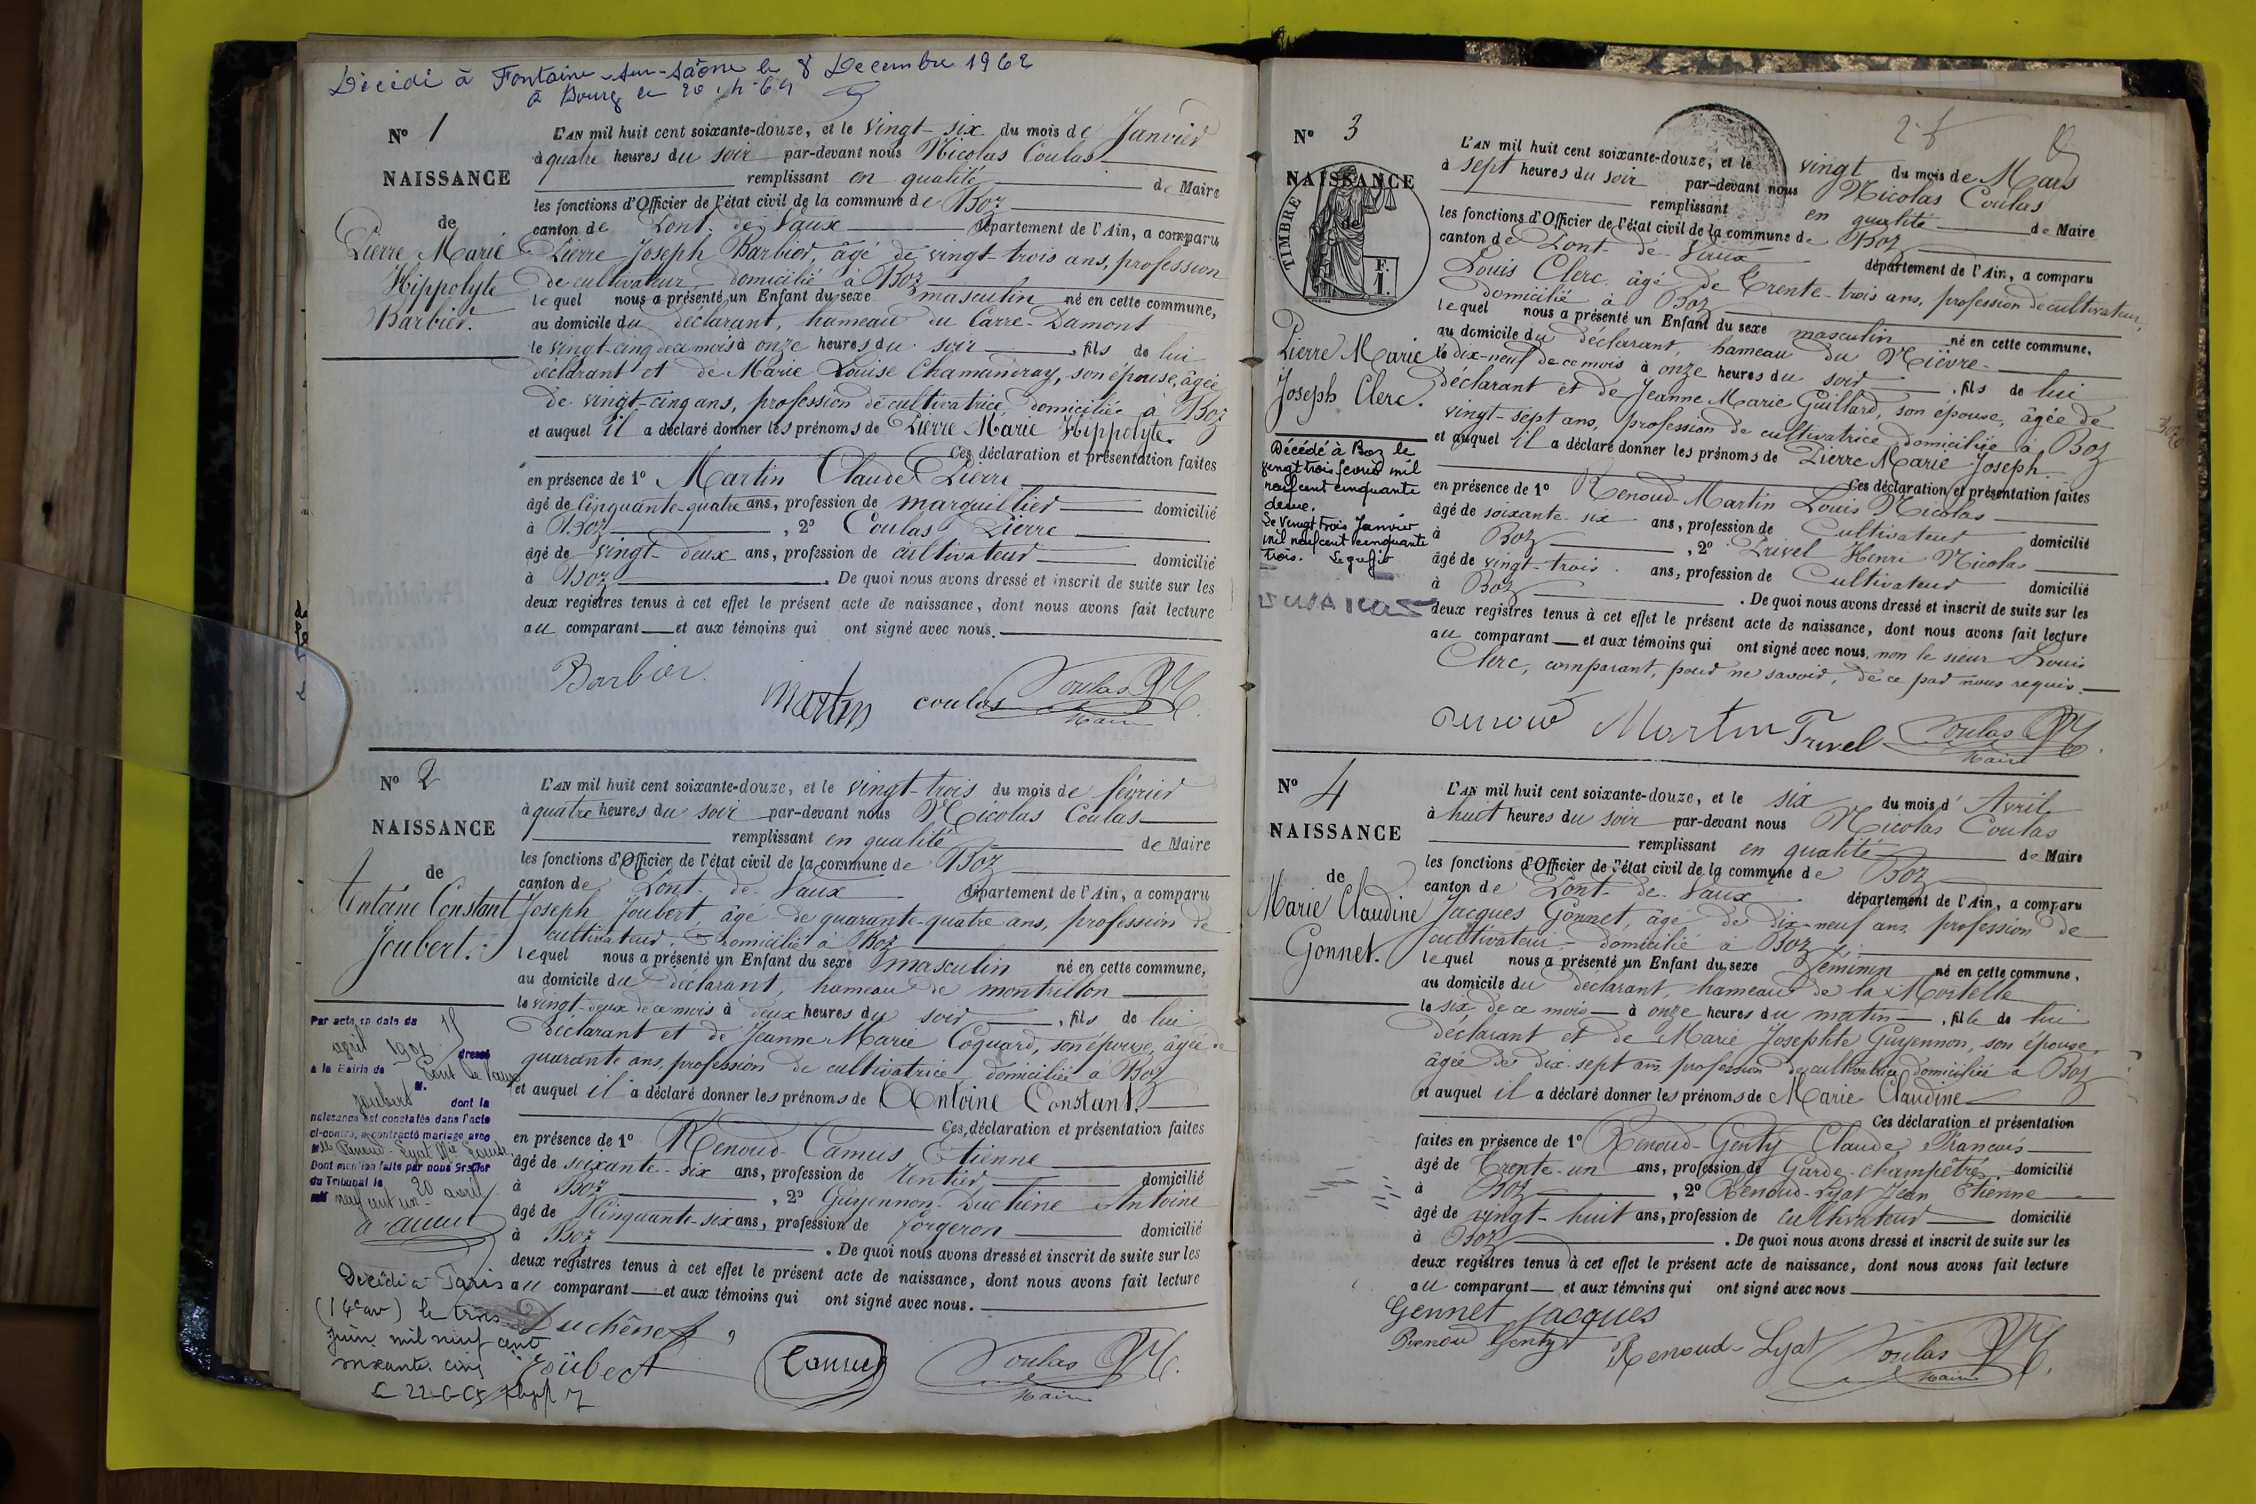 Décédé à Fontaine-sur-Saône le 8 Decembre 1962
à Bourg le
N° 1
NAISSANCE
de
Pierre Marie
Hippolyte
Barbier.
L'AN mil huit cent soixante-douze, et le vingt-six du mois de Janvier
à quatre heures du soir par-devant nous Nicolas Coulas
remplissant en qualité de Maire
les fonctions d'Officier de l'état civil de la commune de Boz
canton de Pont-de-Vaux département de l'Ain, a comparu
Pierre Joseph Barbier, âgé de vingt-trois ans, profession
de cultivateur domicilié à Boz
lequel nous a présenté un Enfant du sexe masculin né en cette commune,
au domicile du déclarant, hameau du Carre-Damont
le vingt-cinq de ce mois à onze heures du soir, fils de lui
déclarant et de Marie Louise Chamandray, son épouse, âgée
de vingt-cinq ans, profession de cultivatrice, domiciliée à Boz
et auquel il a déclaré donner les prénoms de Pierre Marie Hippolyte.
Ces déclaration et présentation faites
en présence de 1° Martin Claude Pierre
âgé de cinquante-quatre ans, profession de marguillier domicilié
à Boz, 2° Coulas Pierre
âgé de vingt-deux ans, profession de cultivateur domicilié
à Boz. De quoi nous avons dressé et inscrit de suite sur les
deux registres tenus à cet effet le présent acte de naissance, dont nous avons fait lecture
au comparant et aux témoins qui ont signé avec nous.
Barbier. Martin coulas Coulas
Maire
N° 2
NAISSANCE
de
Antoine Constant
Joubert.
L'AN mil huit cent soixante-douze, et le vingt-trois du mois de février
à quatre heures du soir par-devant nous Nicolas Coulas
remplissant en qualité de Maire
les fonctions d'Officier de l'état civil de la commune de Boz
canton de Pont-de-Vaux département de l'Ain, a comparu
Joseph Joubert, âgé de quarante-quatre ans, profession de
cultivateur, domicilié à Boz
lequel nous a présenté un Enfant du sexe masculin né en cette commune,
au domicile du déclarant, hameau de montrillon
le vingt-deux de ce mois à deux heures du soir, fils de lui
déclarant et de Jeanne Marie Coquard, son épouse, âgée de
quarante ans, profession de cultivatrice domiciliée à Boz
et auquel il a déclaré donner les prénoms de Antoine Constant.
Ces déclaration et présentation faites
en présence de 1° Renoud-Camus Etienne
âgé de soixante-six ans, profession de rentier domicilié
à Boz, 2° Guyennon-Duchêne Antoine
âgé de cinquante-six ans, profession de forgeron domicilié
à Boz. De quoi nous avons dressé et inscrit de suite sur les
deux registres tenus à cet effet le présent acte de naissance, dont nous avons fait lecture
au comparant et aux témoins qui ont signé avec nous.
Par acte en date du 15
avril 1901 dressé
à la Mairie de Pont de Vaux
M.
Joubert dont la
naissance est constatée dans l'acte
ci-contre, a contracté mariage avec
Mlle Renoud-Lyat Mie Louise
Dont mention faite par nous Greffier
du Tribunal le 20 avril
mil neuf cent un
Décédé à Paris
(14e arr) le trois
juin mil neuf cent
soixante cinq
Duchêne
Joubert Camus Coulas
Maire
N° 3
NAISSANCE
de
TIMBRE
F.
1.
Pierre Marie
Joseph Clerc.
Décédé à Boz le
vingt trois février mil
neuf cent cinquante
deux.
Le vingt trois Janvier
mil neuf cent cinquante
trois. Le greffier
L'AN mil huit cent soixante-douze, et le vingt du mois de Mars
à sept heures du soir par-devant nous Nicolas Coulas
remplissant en qualité de Maire
les fonctions d'Officier de l'état civil de la commune de Boz
canton de Pont-de-Vaux département de l'Ain, a comparu
Louis Clerc, âgé de trente-trois ans, profession de cultivateur,
domicilié à Boz
lequel nous a présenté un Enfant du sexe masculin né en cette commune,
au domicile du déclarant, hameau du Nièvre
le dix-neuf de ce mois à onze heures du soir, fils de lui
déclarant et de Jeanne Marie Guillard, son épouse, âgée de
vingt-sept ans, profession de cultivatrice, domiciliée à Boz
et auquel il a déclaré donner les prénoms de Pierre Marie Joseph
Ces déclaration et présentation faites
en présence de 1° Renoud-Martin Louis Nicolas
âgé de soixante-six ans, profession de Cultivateur domicilié
à Boz, 2° Trivel Henri Nicolas
âgé de vingt-trois ans, profession de Cultivateur domicilié
à Boz. De quoi nous avons dressé et inscrit de suite sur les
deux registres tenus à cet effet le présent acte de naissance, dont nous avons fait lecture
au comparant et aux témoins qui ont signé avec nous, non le sieur Louis
Clerc, comparant, pour ne savoir, de ce par nous requis.
Renoud Martin Trivel Coulas
Maire
N° 4
NAISSANCE
de
Marie Claudine
Gonnet.
L'AN mil huit cent soixante-douze, et le six du mois d'Avril
à huit heures du soir par-devant nous Nicolas Coulas
remplissant en qualité de Maire
les fonctions d'Officier de l'état civil de la commune de Boz
canton de Pont-de-Vaux département de l'Ain, a comparu
Jacques Gonnet, âgé de dix-neuf ans, profession de
cultivateur, domicilié à Boz
lequel nous a présenté un Enfant du sexe féminin né en cette commune,
au domicile du déclarant, hameau de la Mortelle
le six de ce mois à onze heures du matin, fille de lui
déclarant et de Marie Josephte Guyennon, son épouse,
âgée de dix-sept ans, profession de cultivatrice domiciliée à Boz
et auquel il a déclaré donner les prénoms de Marie Claudine
Ces déclaration et présentation
faites en présence de 1° Renoud-Genty Claude François
âgé de trente-un ans, profession de Garde-champêtre, domicilié
à Boz, 2° Renoud-Lyat Jean Etienne
âgé de vingt-huit ans, profession de cultivateur domicilié
à Boz. De quoi nous avons dressé et inscrit de suite sur les
deux registres tenus à cet effet le présent acte de naissance, dont nous avons fait lecture
au comparant et aux témoins qui ont signé avec nous
Gonnet Jacques
Renoud Genty Renoud-Lyat Coulas
Maire